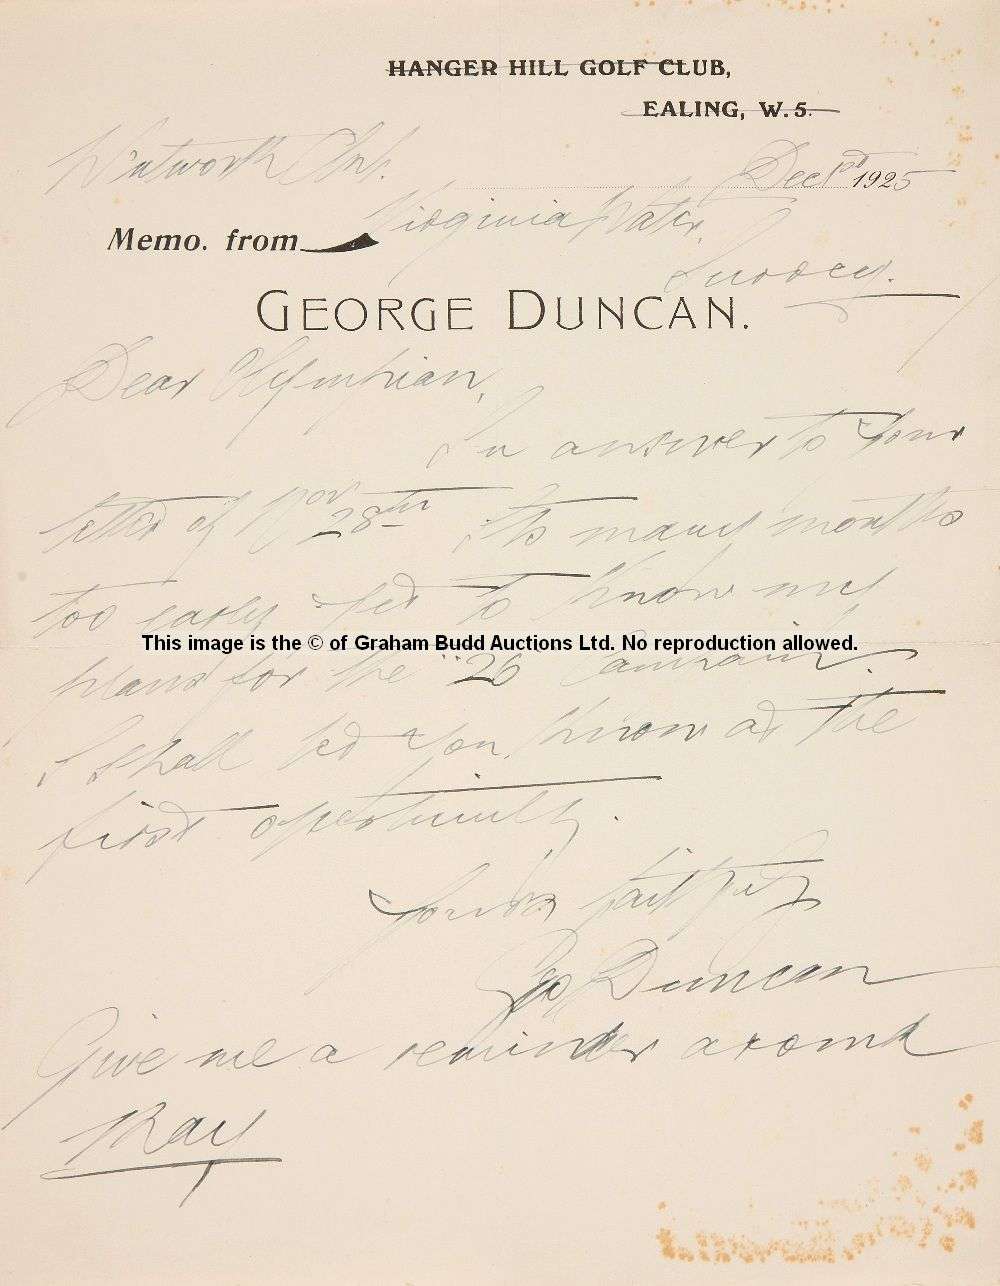 HANGER HILL GOLF CLUB,
EALING, W. 5.
Wentworth Club.
Dec 1st 1925
Virginia Water.
Memo. from
Surrey.
GEORGE DUNCAN.
Dear Olympian,
In answer to your
letter of Nov 28th its many months
too early yet to know my
This image is the © of Graham Budd Auctions Ltd. No reproduction allowed.
plans for the "26" campaign.
I shall let you know at the
first opportunity.
Yours faithfully
Geo Duncan
Give me a reminder around
May